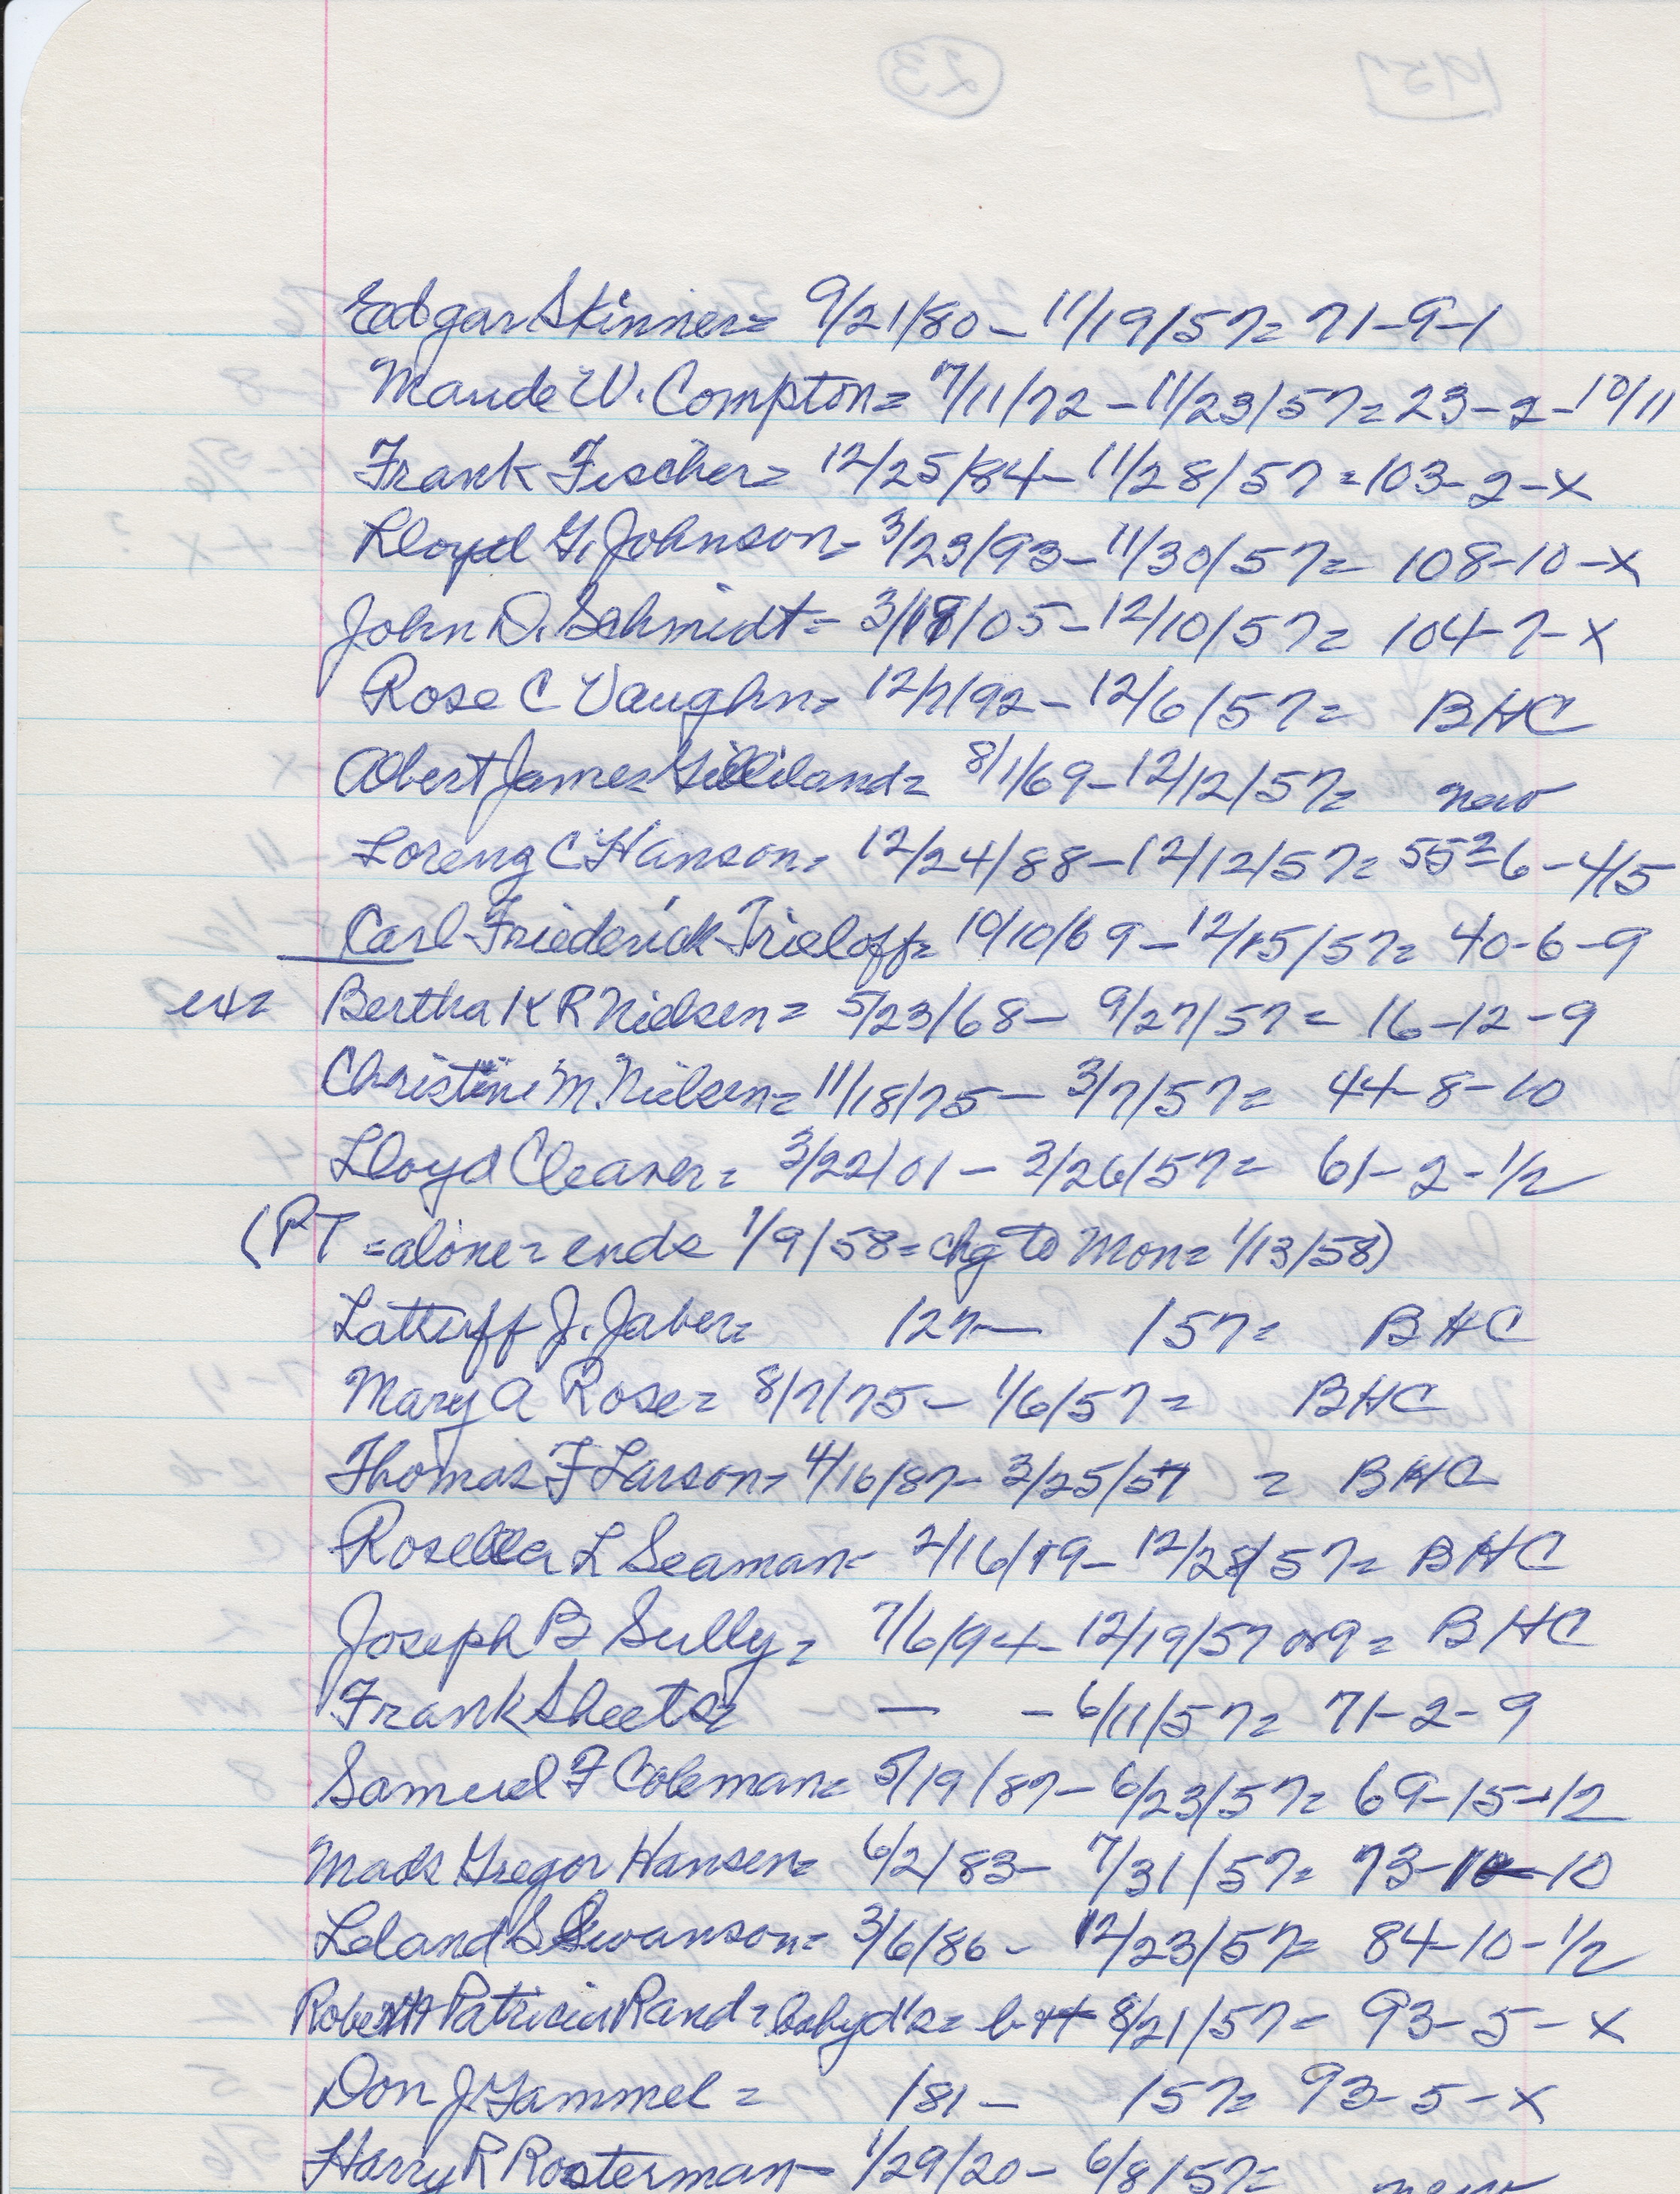 Edgar Skinner= 9/21/80- 11/19/57= 71-9-1
Maude W. Compton= 7/11/72-11/23/57=23-2-10/11
Frank Fischer= 12/25/84-11/28/57=103-2-x
Lloyd G. Johnson= 3/23/93-11/30/57= 108-10-x
John D. Schmidt= 3/18/05-12/10/57= 104-7-x
Rose C Vaughn= 12/7/92- 12/6/57= BHC
Albert James Gilliland= 8/1/69-12/12/57= new
Loreng C Hanson= 12/24/88-12/12/57= 55²-6-4/5
Carl Friederick Trieloff= 10/10/69-12/15/57= 40-6-9
ex= Bertha K R Nielsen= 5/23/68- 9/27/57= 16-12-9
Christine M. Nielsen= 11/18/75- 3/7/57= 44-8-10
Lloyd Cleaver= 3/22/01- 3/26/57= 61-2-1/2
(PT =alone= ends 1/9/58=chg to Mon= 1/13/58)
Lattuff J. Jaber= 127- 157= BHC
Mary A Rose= 8/7/75- 1/6/57= BHC
Thomas F Larson= 4/16/87- 3/25/57 = BHC
Rosella L Seaman= 2/16/19- 12/28/57= BHC
Joseph B Sully= 7/6/94-12/19/57 or9= BHC
Frank Sheets= - - 6/11/57= 71-2-9
Samuel F Coleman= 5/19/87- 6/23/57= 69-15-12
Mads Gregor Hansen= 6/2/83- 7/31/57= 73- -10
Leland S Swanson= 3/6/86- 12/23/57= 84-10-1/2
Patricia Rand= baby d's= b+ 8/21/57= 93-5-x
Don J Gammel= /81- /57= 93-5-x
Harry R Rosterman- 1/29/20- 6/8/57= new